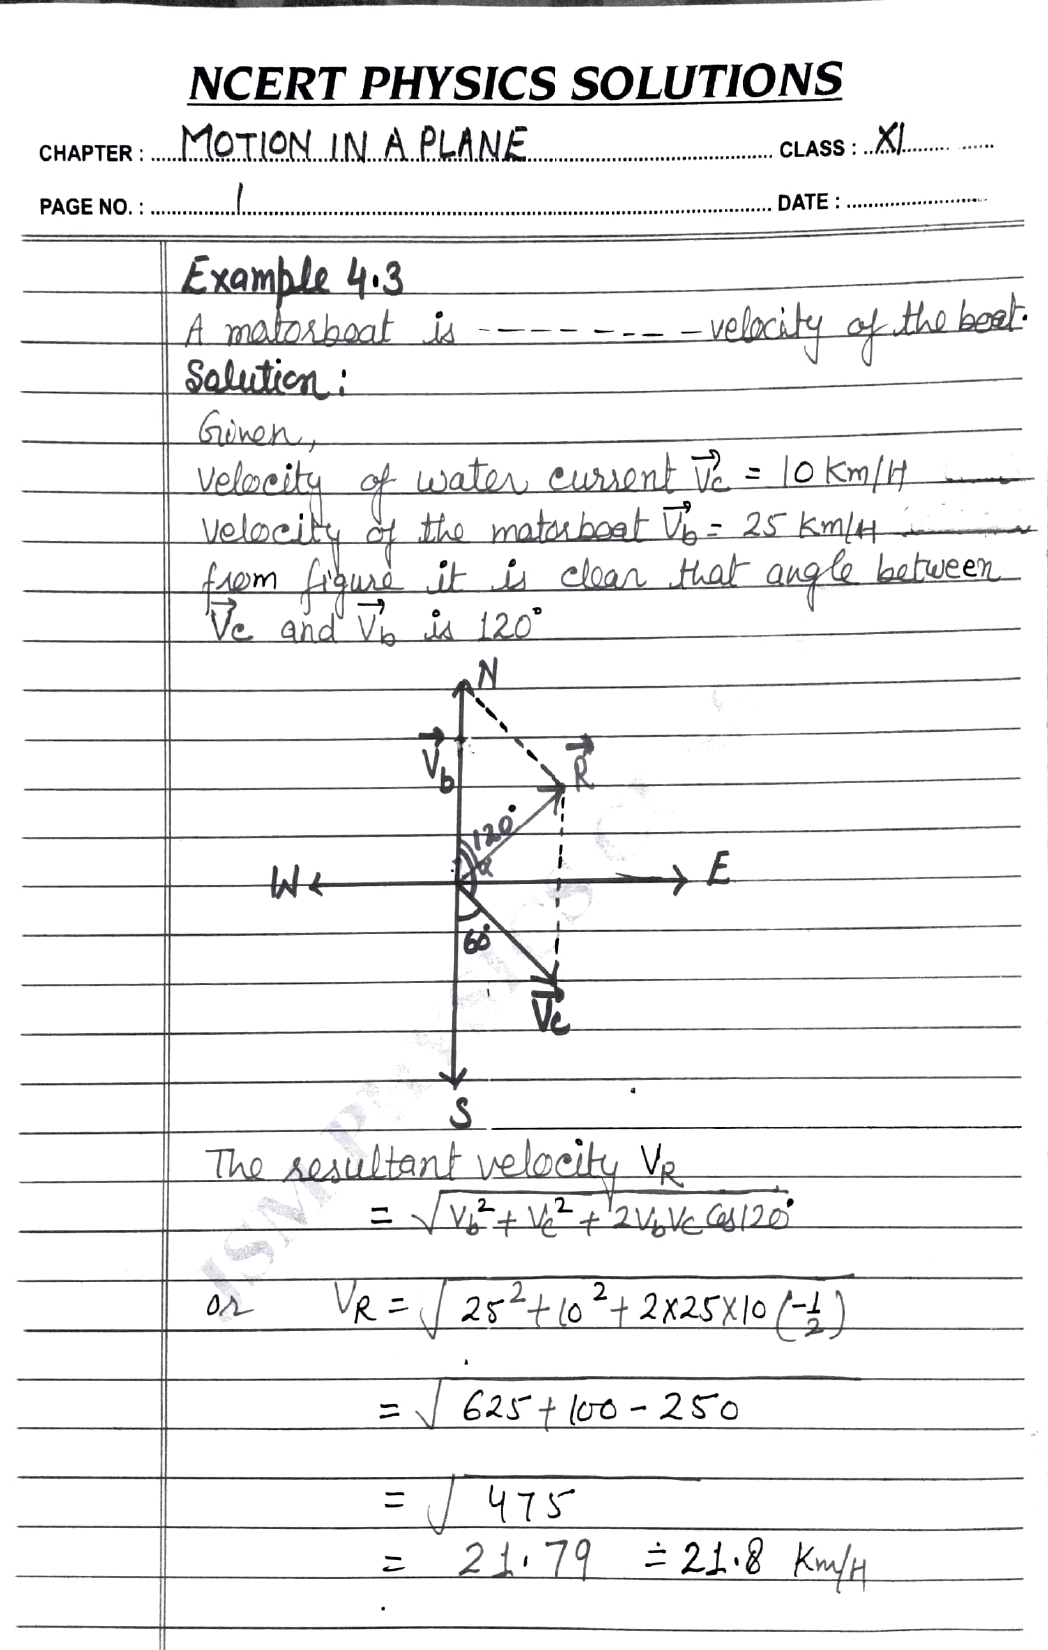 NCERT PHYSICS SOLUTIONS
CHAPTER : MOTION IN A PLANE CLASS : XI
PAGE NO. : 1 DATE :
Example 4.3
A motorboat is - - - - - - - - velocity of the boat.
Solution :
Given,
Velocity of water current V⃗c = 10 Km/H
Velocity of the motorboat V⃗b = 25 Km/H
from figure it is clear that angle between
V⃗c and V⃗b is 120°
N
V⃗b
R⃗
120°
α
W
E
60°
V⃗c
S
The resultant velocity VR
= √Vb² + Vc² + 2VbVc Cos120°
or VR = √25² + 10² + 2×25×10 (-1/2)
= √625 + 100 - 250
= √475
= 21.79 ≐ 21.8 Km/H